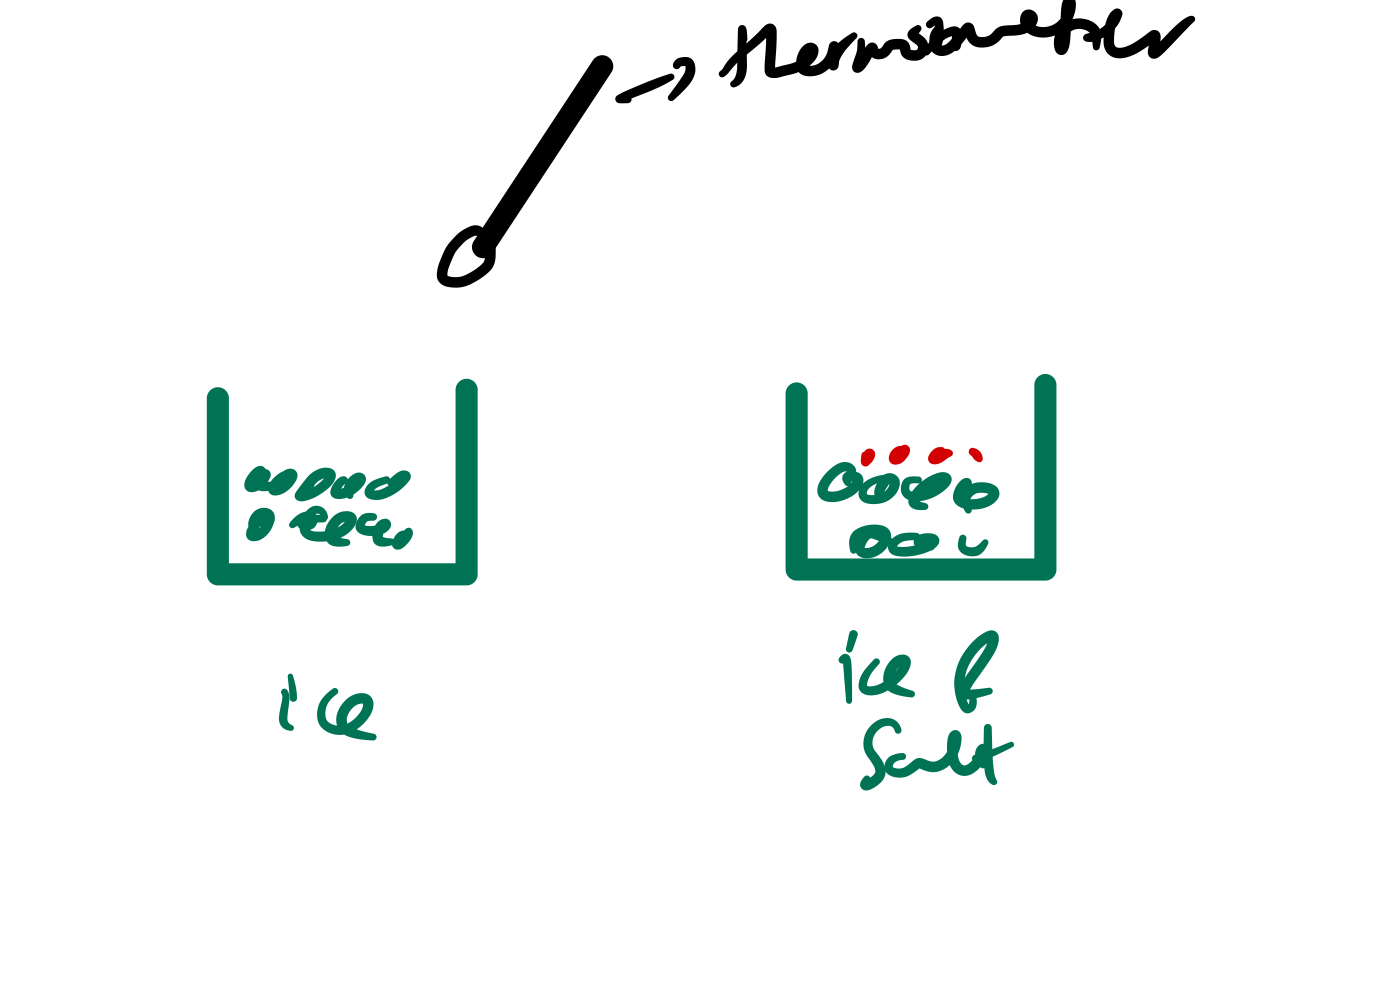 thermometer
ice
ice &
Salt